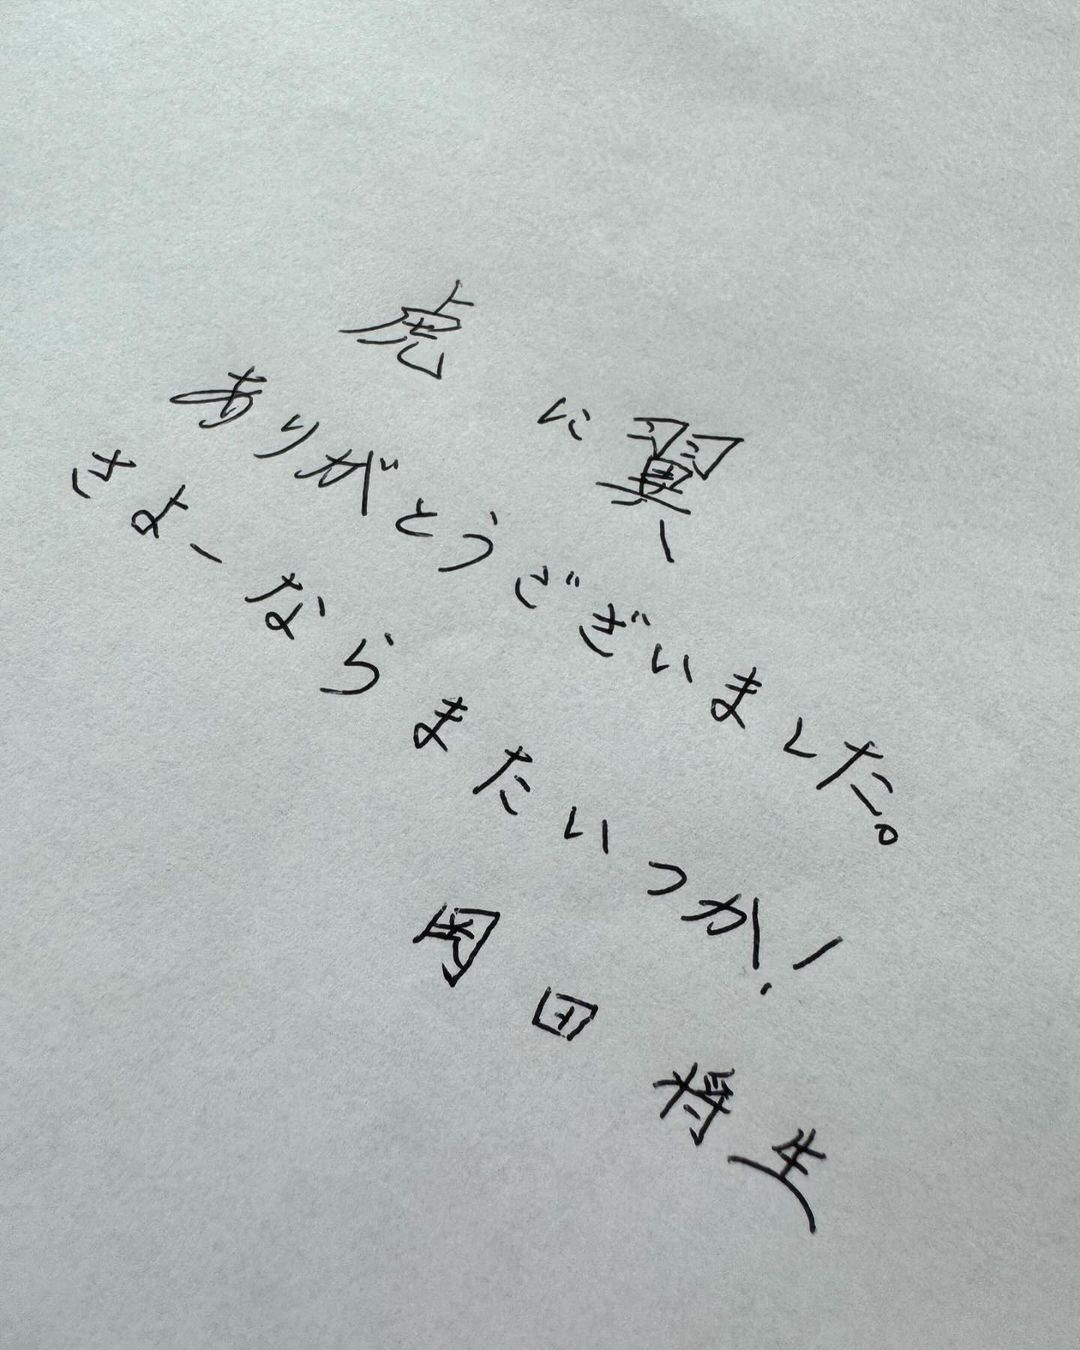 虎に翼、
ありがとうございました。
さよーならまたいつか！
岡田将生